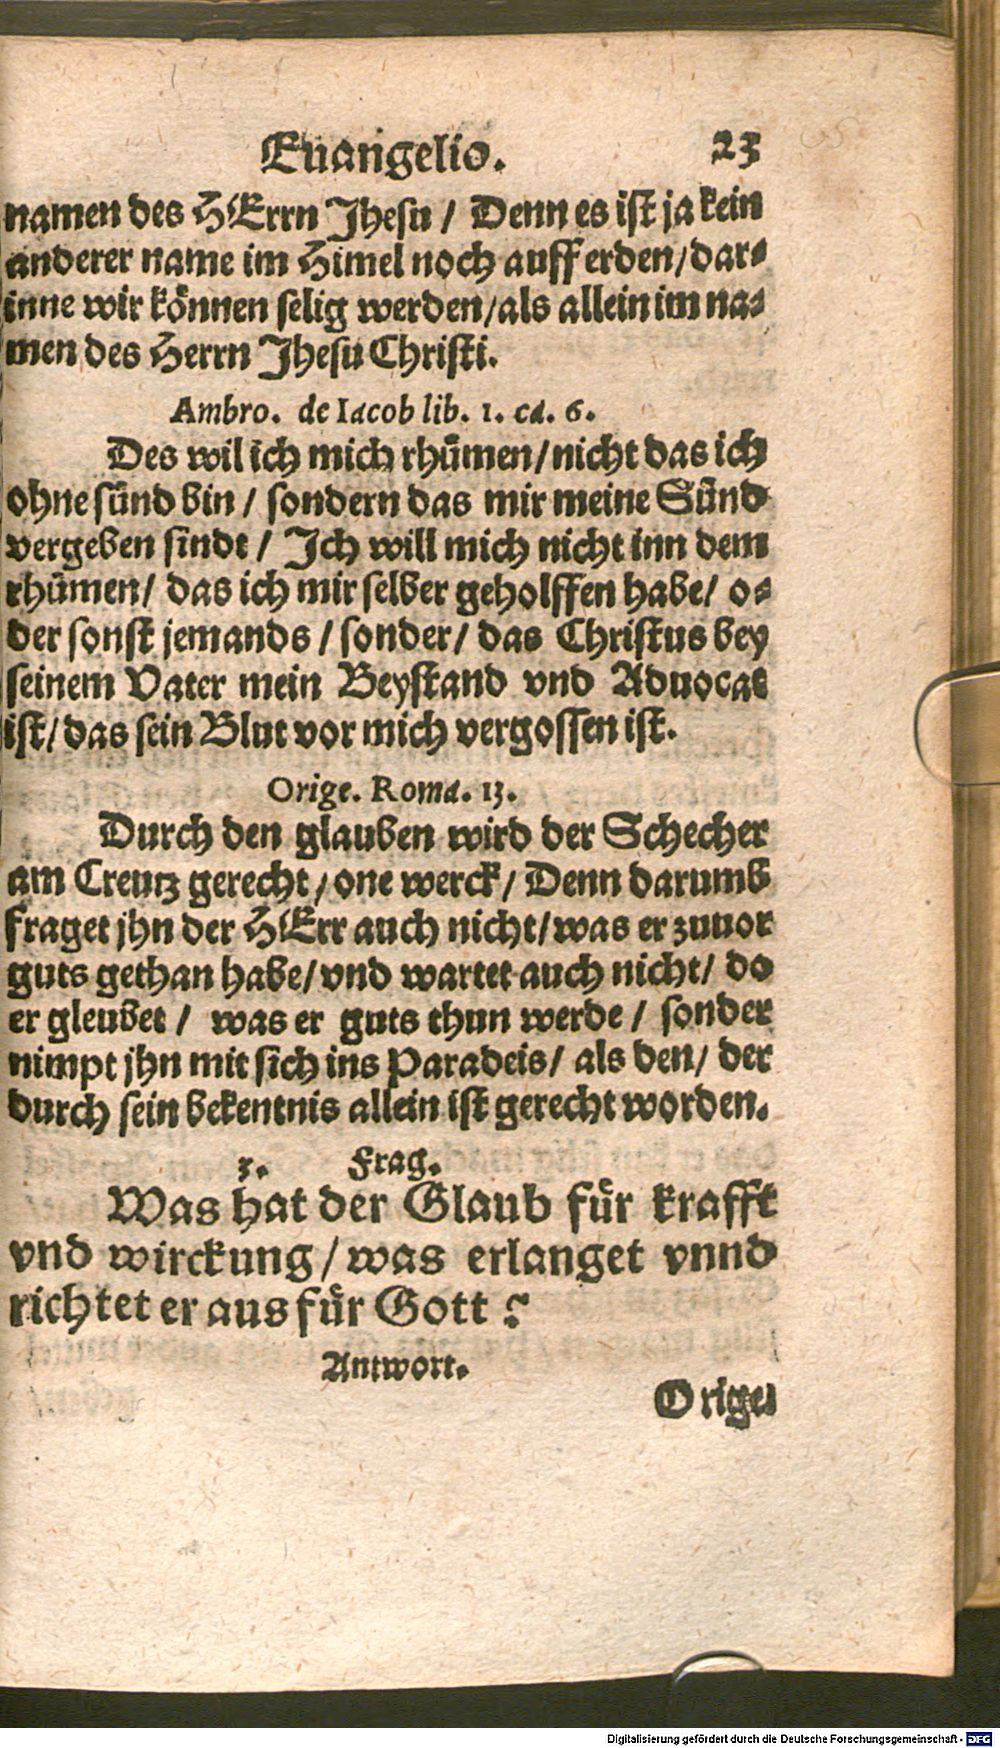 Euangelio. 23
namen des HErrn Jhesu / Denn es ist ja kein
anderer name im Himel noch auff erden/dar-
inne wir können selig werden/als allein im na-
men des Herrn Jhesu Christi.
Ambro. de Iacob lib. 1. ca. 6.
Des wil ich mich rhümen/nicht das ich
ohne sünd bin / sondern das mir meine Sünd
vergeben sindt / Ich will mich nicht inn dem
rhümen/ das ich mir selber geholffen habe/ o-
der sonst jemands / sonder/ das Christus bey
seinem Vater mein Beystand vnd Aduocat
ist/ das sein Blut vor mich vergossen ist.
Orige. Roma. 13.
Durch den glauben wird der Schecher
am Creutz gerecht/one werck/ Denn darumb
fraget jhn der HErr auch nicht/was er zuuor
guts gethan habe/vnd wartet auch nicht/ do
er gleubet / was er guts thun werde / sonder
nimpt jhn mit sich ins Paradeis/ als den/ der
durch sein bekentnis allein ist gerecht worden.
3. Frag.
Was hat der Glaub für krafft
vnd wirckung/was erlanget vnnd
richtet er aus für Gott?
Antwort.
Orige-
Digitalisierung gefördert durch die Deutsche Forschungsgemeinschaft - DFG